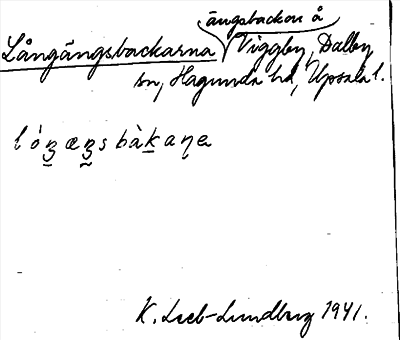 ängsbackar å
Långängsbackarna Viggby, Dalby
sn, Hagunda hd, Upsala l.
lóŋæŋsbàkaɳa
K. Leeb-Lundberg 1941.